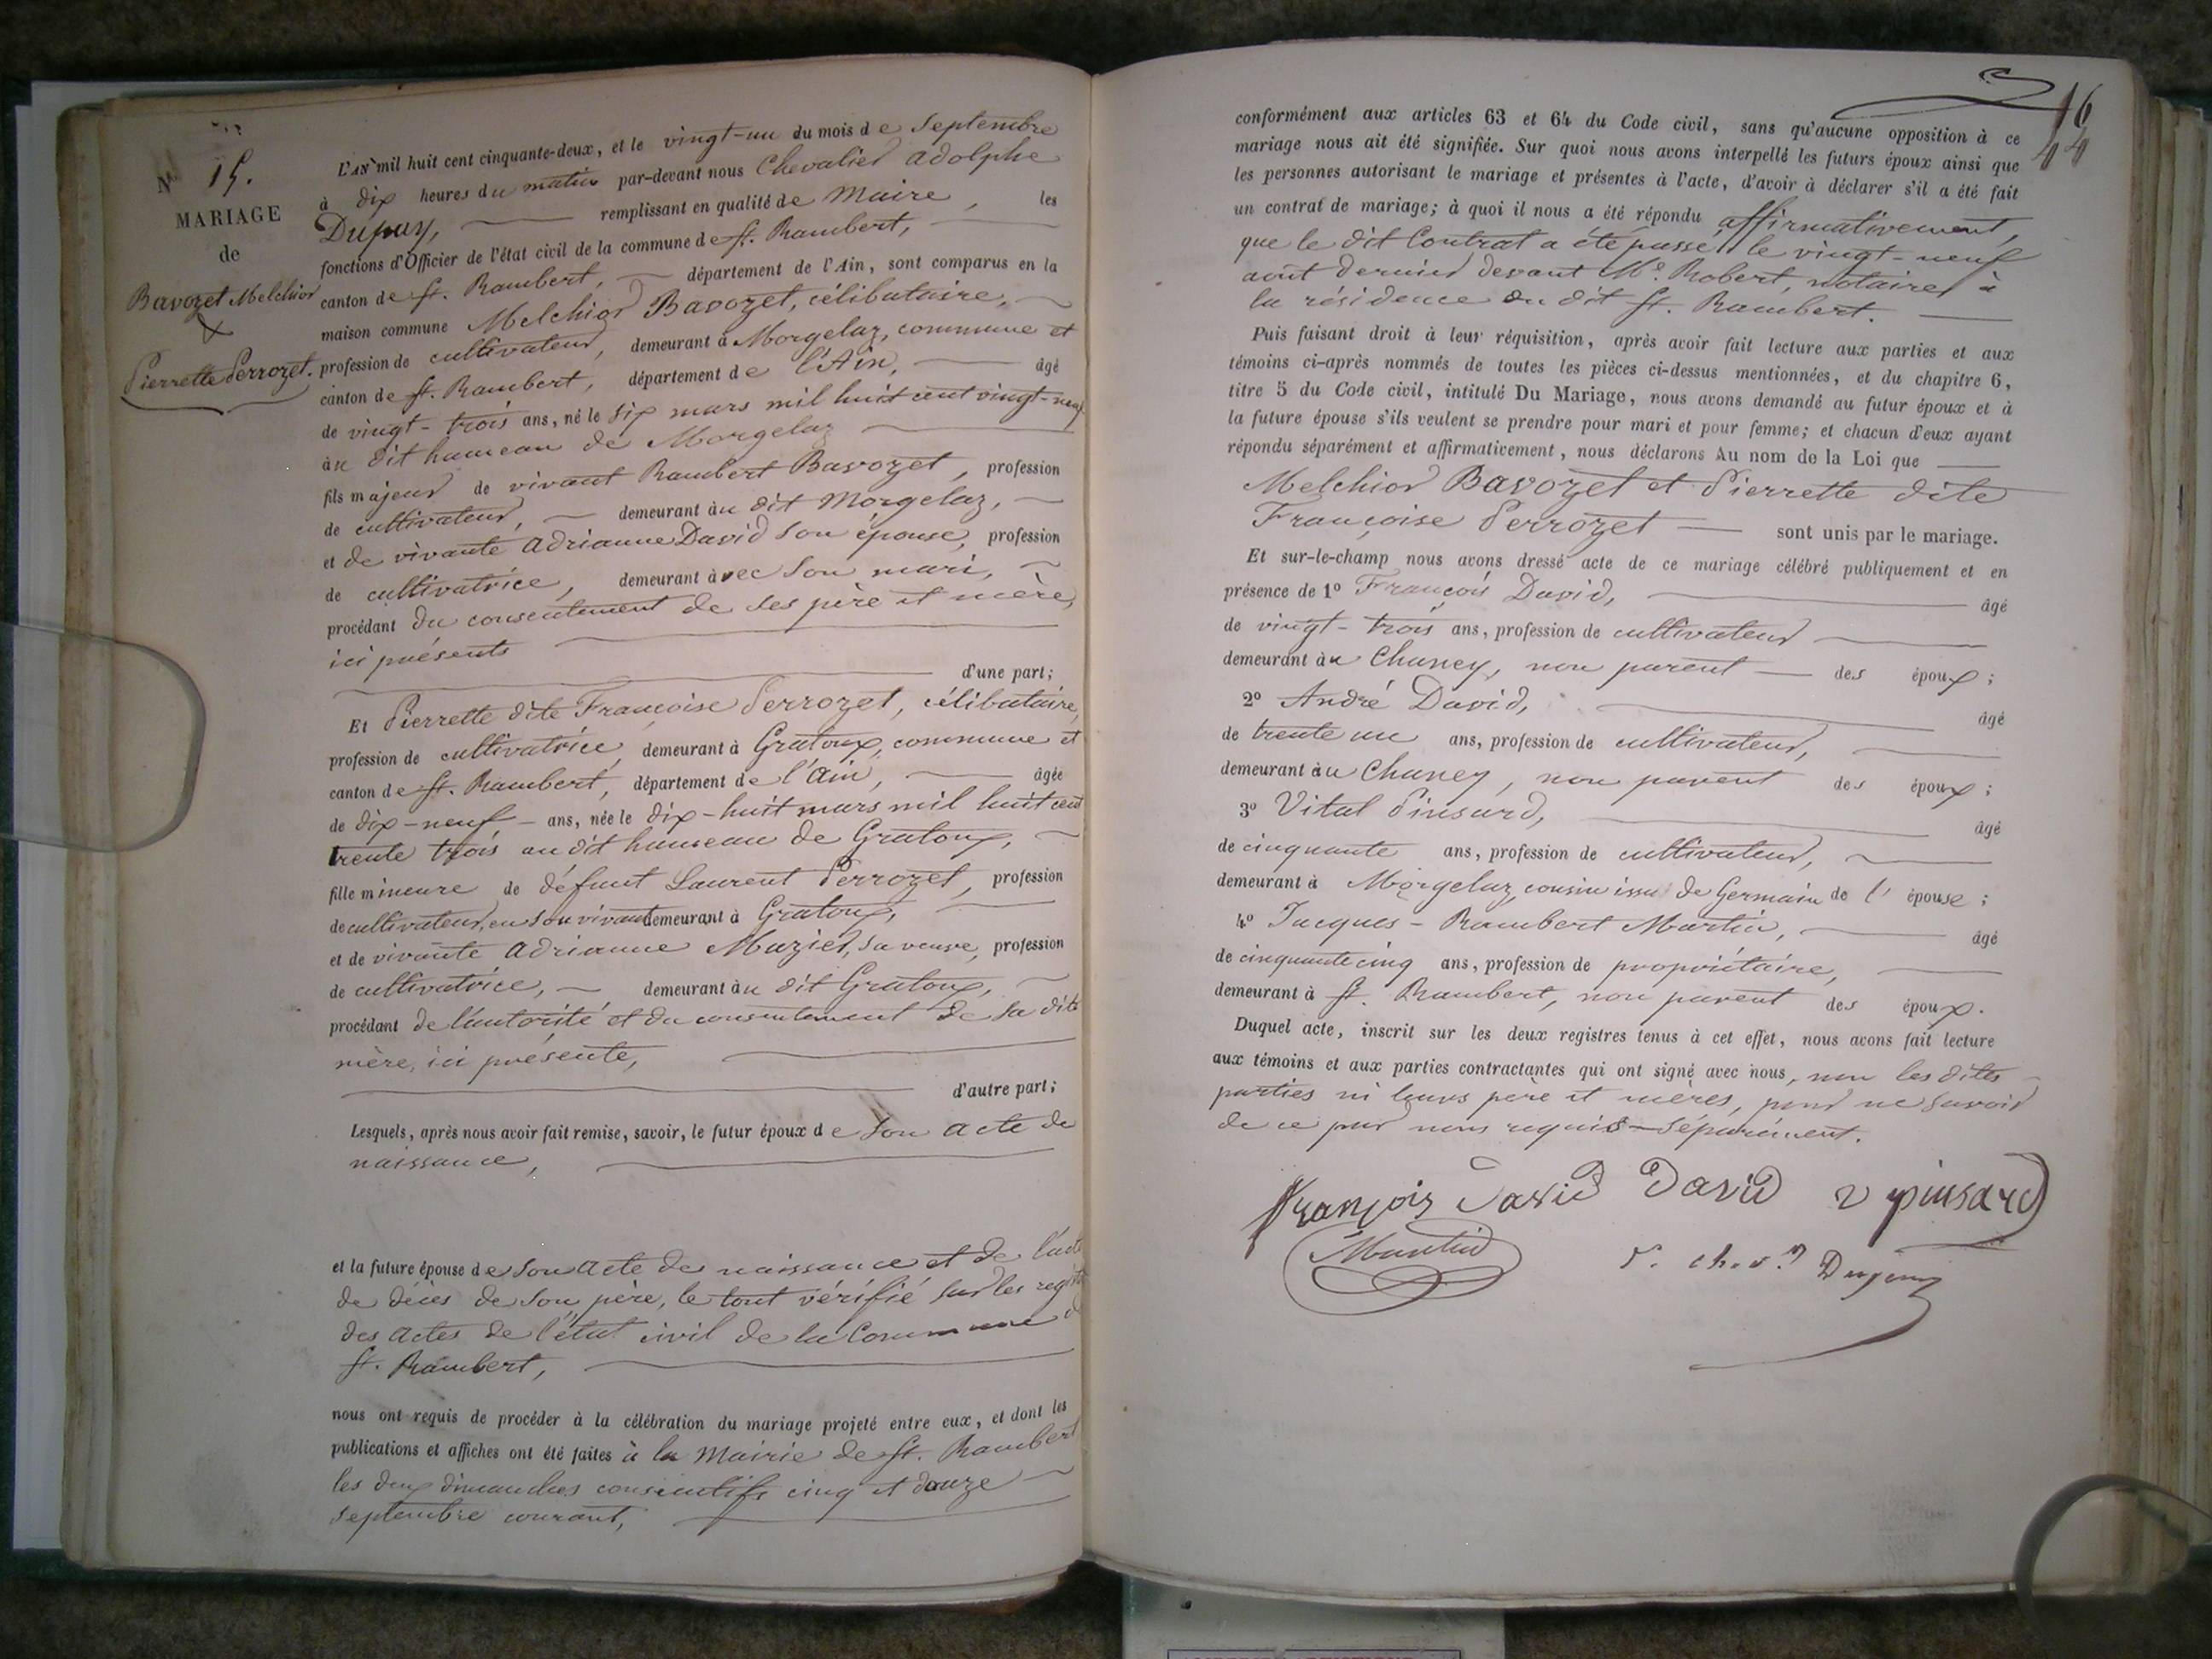 N° 15.
MARIAGE
de
Bavozet Melchior
&
Pierrette Perrozet.
L'AN mil huit cent cinquante-deux, et le vingt-un du mois de Septembre
à dix heures du matin par-devant nous Chevalier Adolphe
Dupuy, remplissant en qualité de Maire, les
fonctions d'Officier de l'état civil de la commune de St. Rambert,
canton de St. Rambert, département de l'Ain, sont comparus en la
maison commune Melchior Bavozet, célibataire,
profession de cultivateur, demeurant à Morgelaz, commune et
canton de St. Rambert, département de l'Ain, âgé
de vingt-trois ans, né le six mars mil huit cent vingt-neuf
au dit hameau de Morgelaz
fils majeur de vivant Rambert Bavozet, profession
de cultivateur, demeurant au dit Morgelaz,
et de vivante Adrianne David son épouse, profession
de cultivatrice, demeurant avec son mari,
procédant du consentement de ses père et mère,
ici présents
d'une part;
Et Pierrette dite Françoise Perrozet, célibataire,
profession de cultivatrice, demeurant à Gratoux, commune et
canton de St. Rambert, département de l'Ain, âgée
de dix-neuf ans, née le dix-huit mars mil huit cent
trente trois au dit hameau de Gratoux,
fille mineure de défunt Laurent Perrozet, profession
de cultivateur, en son vivant demeurant à Gratoux,
et de vivante Adrianne Mazier, sa veuve, profession
de cultivatrice, demeurant au dit Gratoux,
procédant de l'autorité et du consentement de sa dite
mère, ici présente,
d'autre part;
Lesquels, après nous avoir fait remise, savoir, le futur époux de son acte de
naissance,
et la future épouse de son acte de naissance et de l'acte
de décès de son père, le tout vérifié sur les
des actes de l'état civil de la Commune
St. Rambert,
nous ont requis de procéder à la célébration du mariage projeté entre eux, et dont les
publications et affiches ont été faites à la Mairie de St. Rambert
les deux dimanches consécutifs cinq et douze
septembre courant,
16
conformément aux articles 63 et 64 du Code civil, sans qu'aucune opposition à ce
mariage nous ait été signifiée. Sur quoi nous avons interpellé les futurs époux ainsi que
les personnes autorisant le mariage et présentes à l'acte, d'avoir à déclarer s'il a été fait
un contrat de mariage; à quoi il nous a été répondu affirmativement,
que le dit Contrat a été passé le vingt-neuf
août dernier devant Me. Robert, notaire à
la résidence du dit St. Rambert.
Puis faisant droit à leur réquisition, après avoir fait lecture aux parties et aux
témoins ci-après nommés de toutes les pièces ci-dessus mentionnées, et du chapitre 6,
titre 5 du Code civil, intitulé Du Mariage, nous avons demandé au futur époux et à
la future épouse s'ils veulent se prendre pour mari et pour femme; et chacun d'eux ayant
répondu séparément et affirmativement, nous déclarons Au nom de la Loi que
Melchior Bavozet et Pierrette dite
Françoise Perrozet sont unis par le mariage.
Et sur-le-champ nous avons dressé acte de ce mariage célébré publiquement et en
présence de 1° François David, âgé
de vingt-trois ans, profession de cultivateur
demeurant au Chaney, non parent des époux;
2° André David, âgé
de trente un ans, profession de cultivateur,
demeurant au Chaney, non parent des époux;
3° Vital Pinsard, âgé
de cinquante ans, profession de cultivateur,
demeurant à Morgelaz, cousin issu de Germain de l'épouse;
4° Jacques-Rambert Martin, âgé
de cinquante cinq ans, profession de propriétaire,
demeurant à St. Rambert, non parent des époux.
Duquel acte, inscrit sur les deux registres tenus à cet effet, nous avons fait lecture
aux témoins et aux parties contractantes qui ont signé avec nous, non les dites
parties ni leurs père et mères, pour ne savoir
de ce par nous requis séparément.
François David David v pinsard
Martin Dupuy